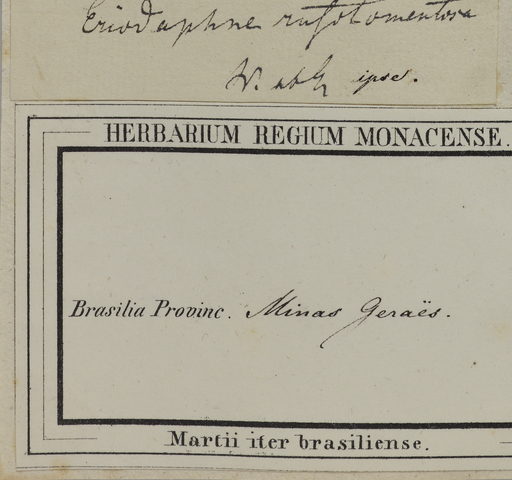 Eriodaphne rufotomentosa
ipse.
HERBARIUM REGIUM MONACENSE.
Brasilia Provinc. Minas Geraës.
Martii iter brasiliense.